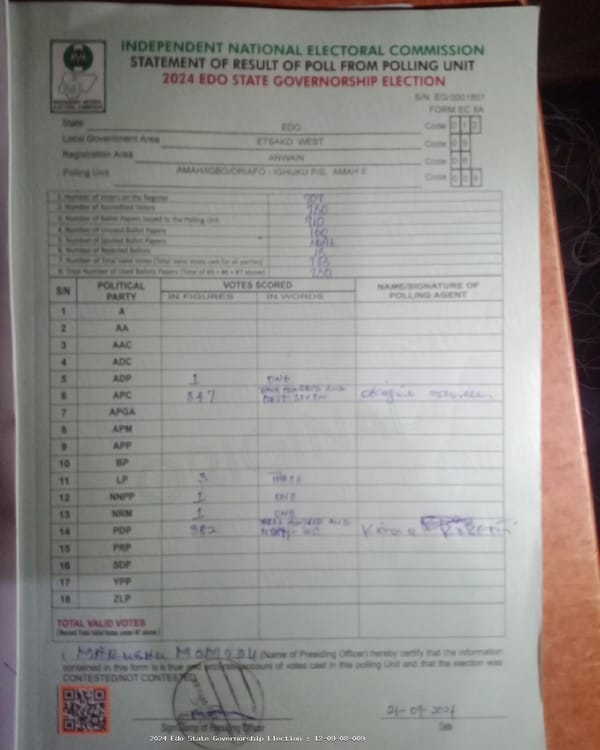 INDEPENDENT NATIONAL ELECTORAL COMMISSION
STATEMENT OF RESULT OF POLL FROM POLLING UNIT
2024 EDO STATE GOVERNORSHIP ELECTION
S/N: EG/0001807
FORM EC 8A
State EDO Code 0 1 2
Local Government Area ETSAKO WEST Code 0 9
Registration Area ANWAIN Code 0 8
Polling Unit AMAH/IGBO/ORIAFO - IGHUKU P/S, AMAH II Code 0 0 9
1. Number of Voters on the Register
2. Number of Accredited Voters 750
3. Number of Ballot Papers Issued to the Polling Unit 910
4. Number of Unused Ballot Papers 160
5. Number of Spoiled Ballot Papers
6. Number of Rejected Ballots 15
7. Number of Total Valid Votes (Total Valid Votes cast for all parties) 735
8. Total Number of Used Ballots Papers (Total of #5 + #6 + #7 above) 750
S/N POLITICAL PARTY VOTES SCORED NAME/SIGNATURE OF POLLING AGENT
IN FIGURES IN WORDS
1 A
2 AA
3 AAC
4 ADC
5 ADP 1 ONE
6 APC 347 THREE HUNDRED AND FORTY-SEVEN
7 APGA
8 APM
9 APP
10 BP
11 LP 3 THREE
12 NNPP 1 ONE
13 NRM 1 ONE
14 PDP 382 THREE HUNDRED AND EIGHTY-TWO
15 PRP
16 SDP
17 YPP
18 ZLP
TOTAL VALID VOTES
(Record Total Valid Votes under #7 above)
I, (Name of Presiding Officer) hereby certify that the information
contained in this form is a true and accurate account of votes cast in this polling Unit and that the election was
CONTESTED/NOT CONTESTED.
21-09-2024
Signature of Presiding Officer Date
2024 Edo State Governorship Election : 12-09-08-009